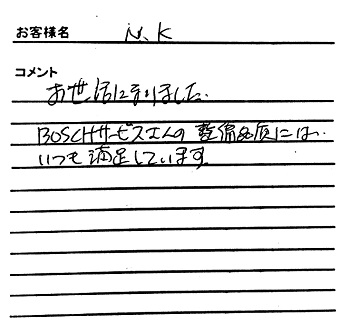 お客様名 N.K
コメント
お世話になりました.
BOSCHサービスさんの 整備品質には..
いつも満足しています.